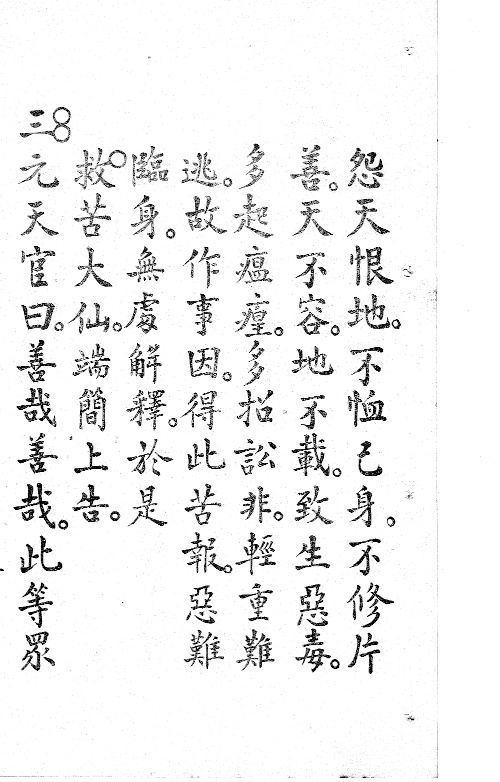 怨天恨地。不恤己身。不修片
善。天不容。地不載。致生惡毒。
多起瘟㾮。多招訟非。輕重難
逃。故作事因。得此苦報。惡難
臨身。無處解釋。於是
救苦大仙。端簡上告。
三元天官曰。善哉善哉。此等眾